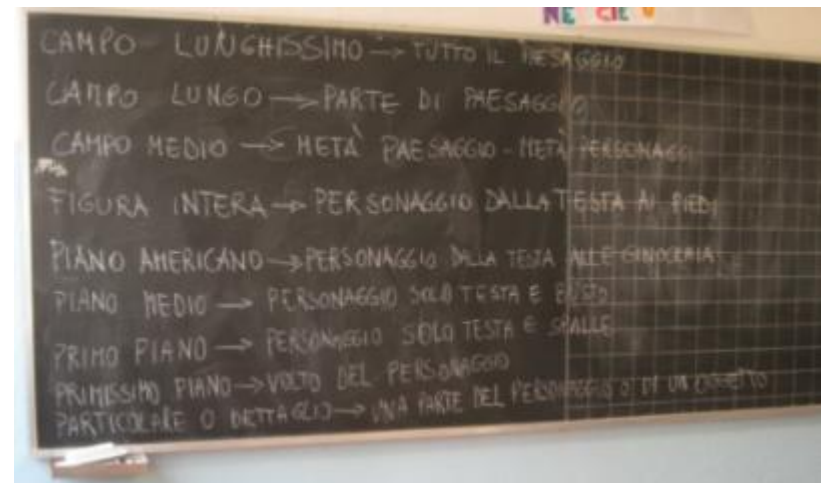 NE CIE
CAMPO LUNGHISSIMO → TUTTO IL PAESAGGIO
CAMPO LUNGO → PARTE DI PAESAGGIO
CAMPO MEDIO → METÀ PAESAGGIO - METÀ PERSONAGGI
FIGURA INTERA → PERSONAGGIO DALLA TESTA AI PIEDI
PIANO AMERICANO → PERSONAGGIO DALLA TESTA ALLE GINOCCHIA
PIANO MEDIO → PERSONAGGIO SOLO TESTA E BUSTO
PRIMO PIANO → PERSONAGGIO SOLO TESTA E SPALLE
PRIMISSIMO PIANO → VOLTO DEL PERSONAGGIO
PARTICOLARE O DETTAGLIO → UNA PARTE DEL PERSONAGGIO O DI UN OGGETTO